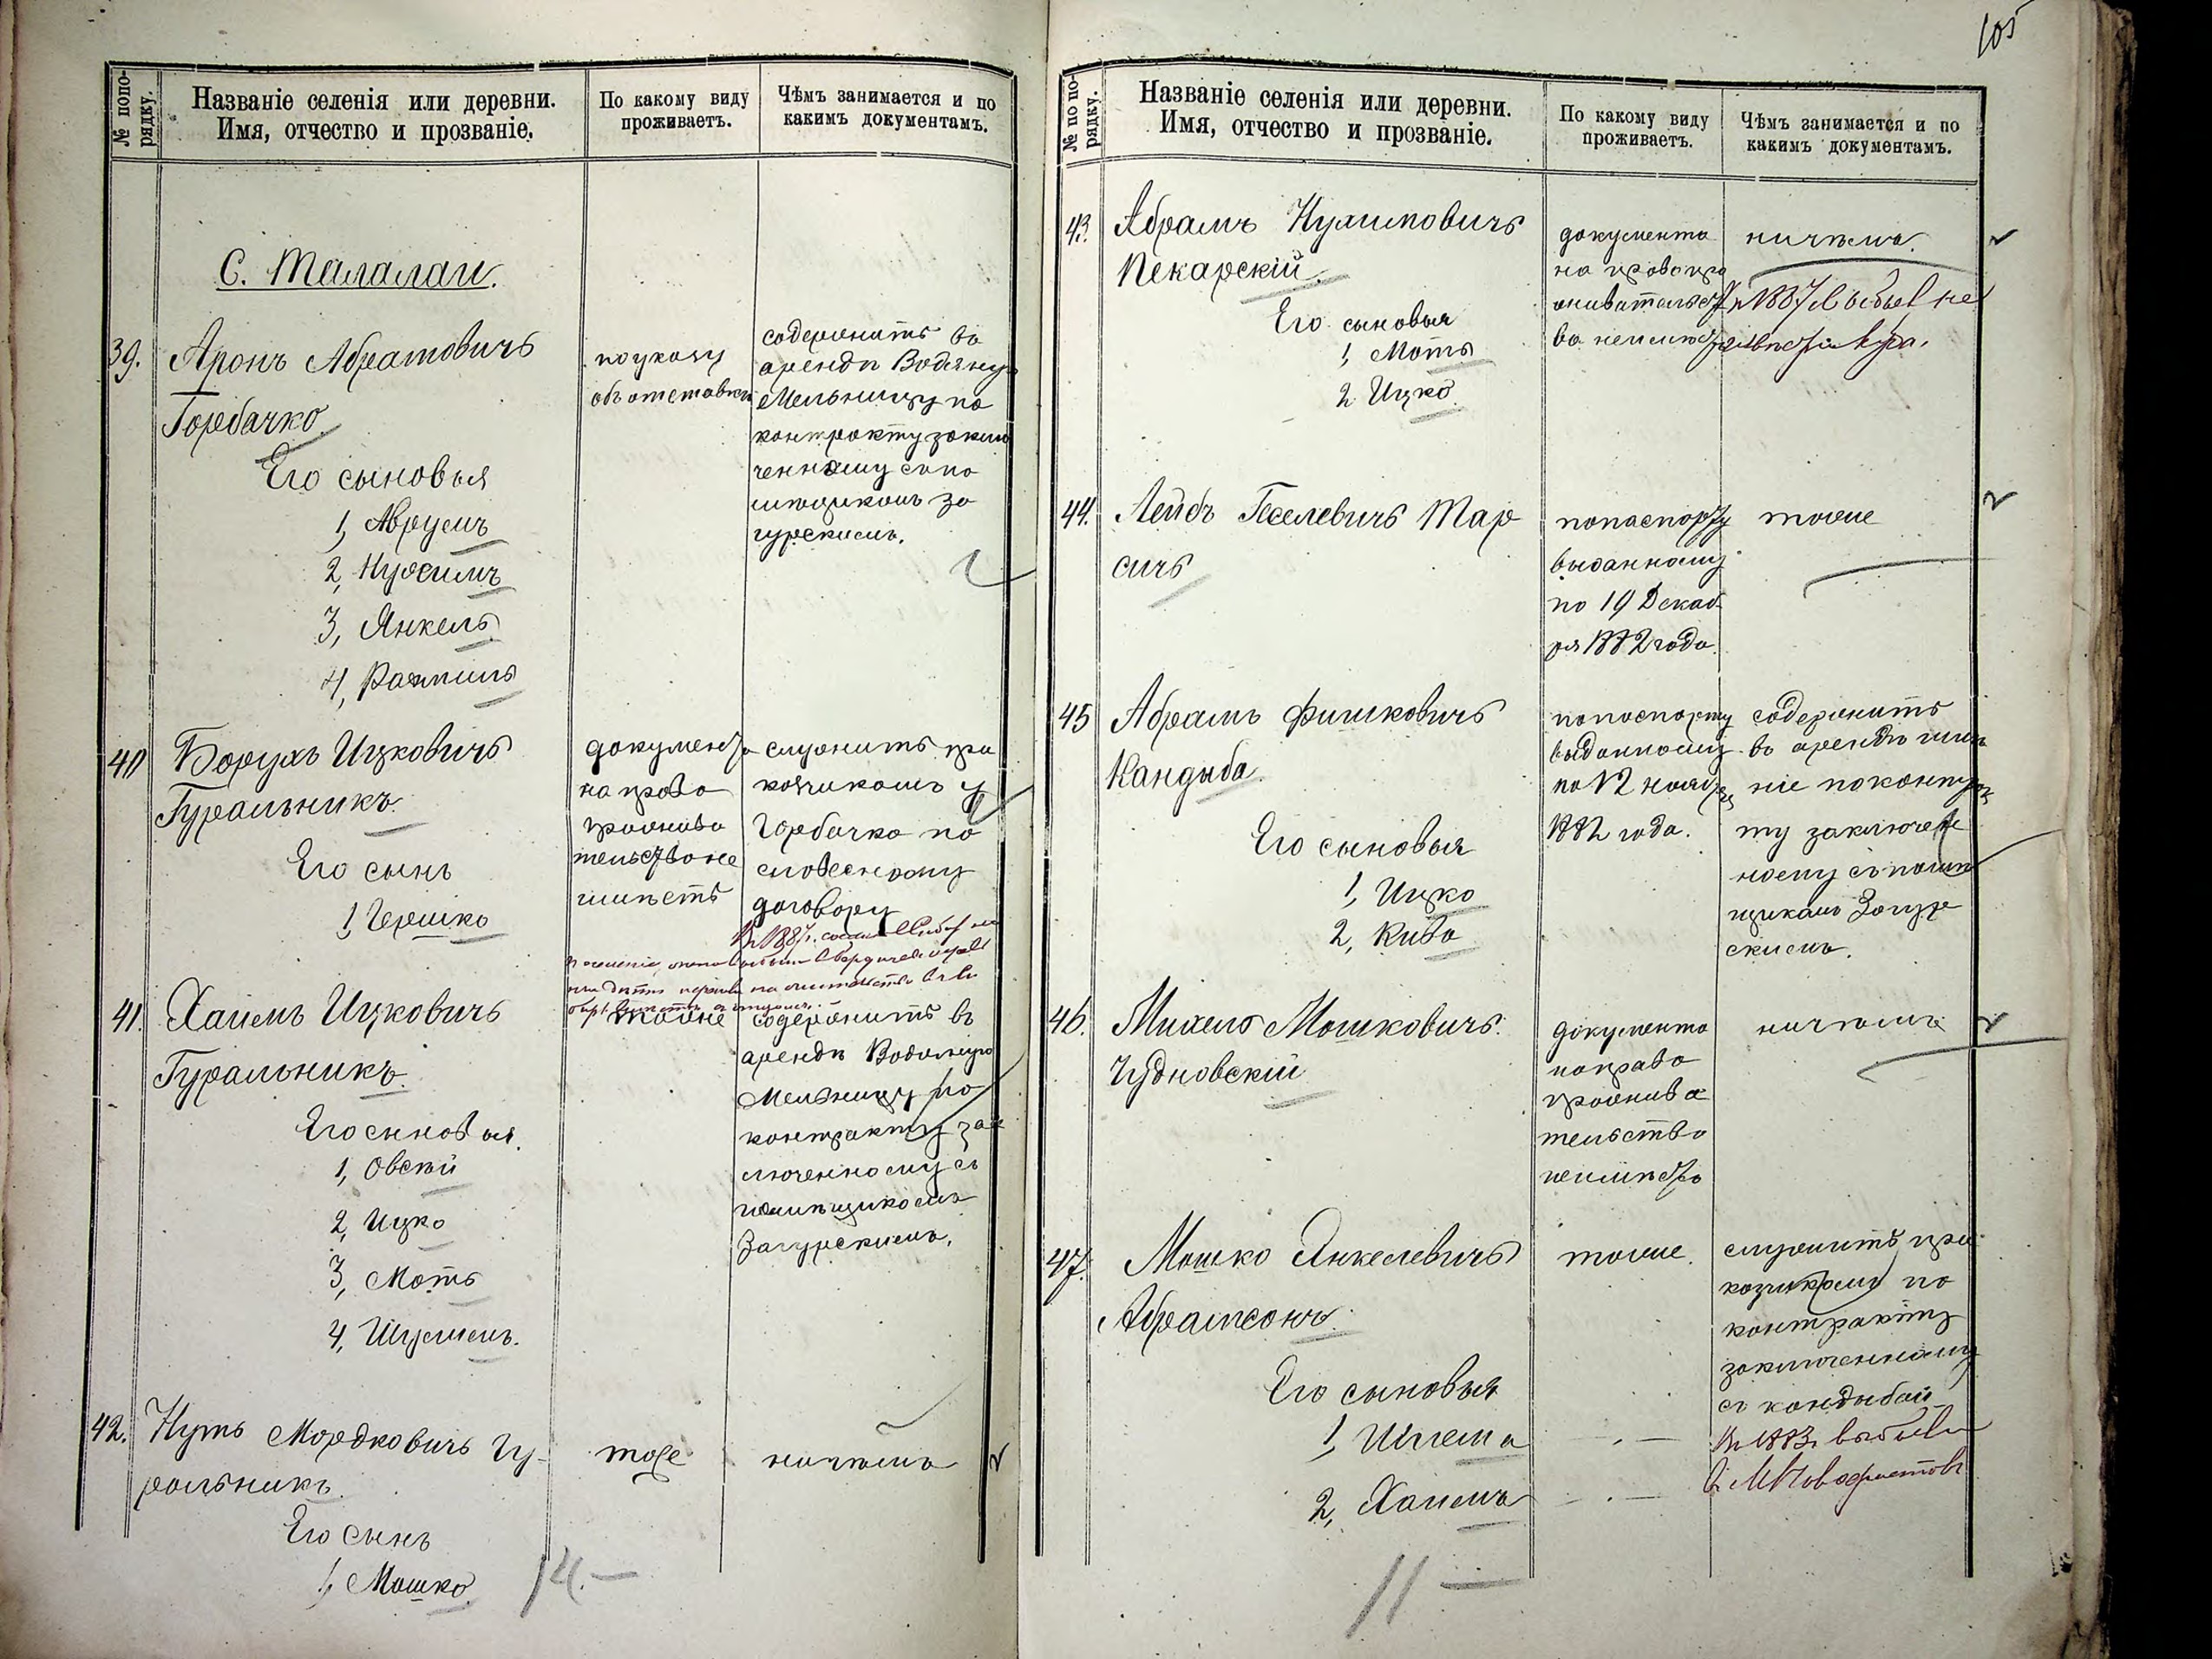 № попо-
рядку.
Названіе селенія или деревни.
Имя, отчество и прозваніе.
По какому виду
проживаетъ.
Чѣмъ занимается и по
какимъ документамъ.
С. Талалаи.
39.
Аронъ Абрамовичъ
Горбачко.
Его сыновья
1, Аврумъ
2, Нухимъ
3, Янкель
4, Рахмиль
по указу
объ отставки
содержитъ въ
арендѣ Водяную
Мельницу по
контракту заклю
ченному съ по
мѣщикомъ За
гурскимъ.
40
Борухъ Ицковичъ
Гуральникъ.
Его сынъ
1, Гершко
документа
на право
прожива
тельство не
имѣетъ
служитъ при
кащикомъ у
Горбачко по
словесному
договору
Въ 1887г.
41.
Хаимъ Ицковичъ
Гуральникъ.
Его сыновья.
1, Овсѣй
2, Ицко
3, Моть
4, Шулимъ.
тоже
содержитъ въ
арендѣ Водяную
Мельницу по
контракту зак
люченному съ
помѣщикомъ
Загурскимъ.
42.
Нутъ Мордковичъ Гу-
ральникъ.
Его сынъ
1, Мошко.
тоже
ничѣмъ
2
14.—
105
№ по по-
рядку.
Названіе селенія или деревни.
Имя, отчество и прозваніе.
По какому виду
проживаетъ.
Чѣмъ занимается и по
какимъ документамъ.
43.
Абрамъ Нухимовичъ
Пекарскій.
Его сыновья
1, Моть
2 Ицко
документа
на право про
живательст
во неимѣе
ничѣмъ.
2
въ 1887 выбылъ не
44.
Лейбъ Геселевичъ Мар
сичъ
по паспорту
выданному
по 19 Декаб
ря 1882 года.
тоже
2
45
Абрамъ Фишковичъ
Кандыба.
Его сыновья
1, Ицко
2, Кива
по паспорту
выданному
по 12 ноября
1882 года.
содержитъ
въ арендѣ имѣ
ніе по контрак
ту заключен
ному съ помѣ
щикамъ Загур
скимъ.
46.
Михель Мошковичъ.
Чудновскій
документа
на право
прожива
тельство
неимѣетъ
ничѣмъ
2
47.
Мошко Янкелевичъ
Абрамсонъ.
Его сыновья
1, Шлема
2, Хаимъ
тоже.
служитъ при
кащикомъ по
контракту
заключенному
съ кандыбай
въ 1883г. выбылъ
в М. Новофастовъ
11 —